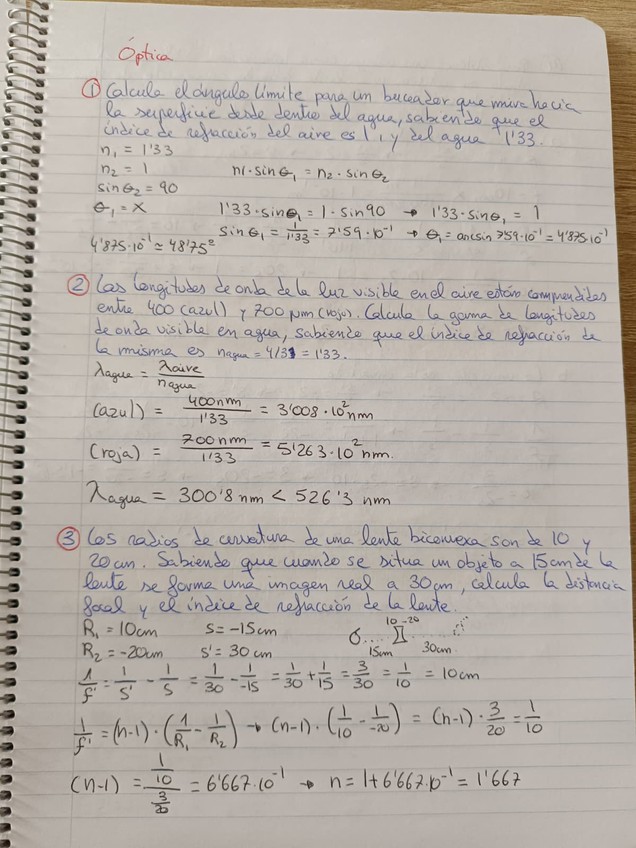 Óptica
① Calcula el ángulo límite para un buceador que mira hacia
la superficie desde dentro del agua, sabiendo que el
índice de refracción del aire es 1, y del agua 1'33.
n₁ = 1'33
n₂ = 1 n₁·sinθ₁ = n₂·sinθ₂
sinθ₂ = 90
θ₁ = x 1'33·sinθ₁ = 1·sin90 → 1'33·sinθ₁ = 1
sinθ₁ = 1/1'33 = 7'59·10⁻¹ → θ₁ = arcsin 7'59·10⁻¹ = 4'875·10⁻¹
4'875·10⁻¹ ≃ 48'75º
② Las longitudes de onda de la luz visible en el aire están comprendidas
entre 400 (azul) y 700 nm (rojo). Calcula la gama de longitudes
de onda visible en agua, sabiendo que el índice de refracción de
la misma es nagua = 4/3 = 1'33.
λagua = λaire/nagua
(azul) = 400nm/1'33 = 3'008·10² nm
(roja) = 700nm/1'33 = 5'263·10² nm.
λagua = 300'8 nm < 526'3 nm
③ Los radios de curvatura de una lente biconvexa son de 10 y
20 cm. Sabiendo que cuando se situa un objeto a 15 cm de la
lente se forma una imagen real a 30 cm, calcula la distancia
focal y el índice de refracción de la lente.
R₁ = 10cm s = -15cm 10 -20
R₂ = -20cm s' = 30 cm 15cm 30cm
1/f' = 1/s' - 1/s = 1/30 - 1/-15 = 1/30 + 1/15 = 3/30 = 1/10 = 10cm
1/f' = (n-1)·(1/R₁ - 1/R₂) → (n-1)·(1/10 - 1/-20) = (n-1)·3/20 = 1/10
(n-1) = 1/10 / 3/20 = 6'667·10⁻¹ → n = 1+6'667·10⁻¹ = 1'667